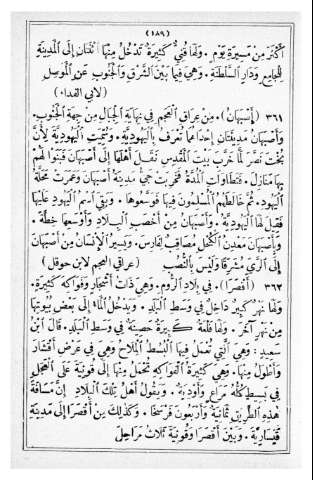 (١٨٩)
أَكْثَرَ مِنْ مَسِيرَةِ يَوْمٍ . وَلَهَا قُنِيٌّ كَثِيرَةٌ تَدْخُلُ مِنْهَا ٱثْنَتَانِ إِلَى ٱلْمَدِينَةِ
لِلْجَامِعِ وَدَارِ ٱلسَّلْطَنَةِ . وَهِيَ فِيمَا بَيْنَ ٱلشَّرْقِ وَٱلْجَنُوبِ عَنِ ٱلْمَوْصِلِ
(لابي الفداء)
٣٦١ (أَصْبَهَانُ) . مِنْ عِرَاقِ ٱلْعَجَمِ فِي نِهَايَةِ ٱلْجِبَالِ مِنْ جِهَةِ ٱلْجَنُوبِ .
وَأَصْبَهَانُ مَدِينَتَانِ إِحْدَاهُمَا تُعْرَفُ بِٱلْيَهُودِيَّةِ . وَسُمِّيَتِ ٱلْيَهُودِيَّةَ لِأَنَّ
بُخْتَ نَصَّرَ لَمَّا خَرَّبَ بَيْتَ ٱلْمَقْدِسِ نَقَلَ أَهْلَهَا إِلَى أَصْبَهَانَ فَبَنَوْا لَهُمْ
بِهَا مَنَازِلَ . فَتَطَاوَلَتِ ٱلْمُدَّةُ فَخَرِبَتْ جَيُّ مَدِينَةُ أَصْبَهَانَ وَعَمَرَتْ مَحَلَّةُ
ٱلْيَهُودِ . ثُمَّ خَالَطَهُمُ ٱلْمُسْلِمُونَ فِيهَا فَوَسَّعُوهَا . وَبَقِيَ ٱسْمُ ٱلْيَهُودِ عَلَيْهَا
فَقِيلَ لَهَا ٱلْيَهُودِيَّةُ . وَأَصْبَهَانُ مِنْ أَخْصَبِ ٱلْبِلَادِ وَأَوْسَعِهَا خِطَّةً .
وَبِأَصْبَهَانَ مَعْدِنُ ٱلْكُحْلِ مُصَاقِبٌ لِفَارِسَ . وَيَسِيرُ ٱلْإِنْسَانُ مِنْ أَصْبَهَانَ
إِلَى ٱلرَّيِّ مُشَرِّقًا وَلَيْسَ بِٱلنَّصْبِ (عراقي العجم لابن حوقل)
٣٦٢ (أَقْصَرَا) . فِي بِلَادِ ٱلرُّومِ . وَهِيَ ذَاتُ أَشْجَارٍ وَفَوَاكِهَ كَثِيرَةٍ .
وَلَهَا نَهْرٌ كَبِيرٌ دَاخِلٌ فِي وَسَطِ ٱلْبَلَدِ . وَيَدْخُلُ ٱلْمَاءُ إِلَى بَعْضِ بُيُوتِهَا
مِنْ نَهْرٍ آخَرَ . وَلَهَا قَلْعَةٌ كَبِيرَةٌ حَصِينَةٌ فِي وَسَطِ ٱلْبَلَدِ . قَالَ ٱبْنُ
سَعِيدٍ : وَهِيَ ٱلَّتِي تُعْمَلُ فِيهَا ٱلْبُسْطُ ٱلْمِلَاحُ وَهِيَ فِي عَرْضِ أَقْشَارَ
وَأَطْوَلُ مِنْهَا . وَهِيَ كَثِيرَةُ ٱلْفَوَاكِهِ تُحْمَلُ مِنْهَا إِلَى قُونِيَةَ عَلَى ٱلْعَجَلِ
فِي بَسِيطٍ كُلُّهُ مَرَاعٍ وَأَوْدِيَةٌ . وَيَقُولُ أَهْلُ تِلْكَ ٱلْبِلَادِ إِنَّ مَسَافَةَ
هٰذِهِ ٱلطَّرِيقِ ثَمَانِيَةٌ وَأَرْبَعُونَ فَرْسَخًا . وَكَذٰلِكَ مِنْ أَقْصَرَا إِلَى مَدِينَةِ
قَيْسَارِيَّةَ . وَبَيْنَ أَقْصَرَا وَقُونِيَةَ ثَلَاثُ مَرَاحِلَ